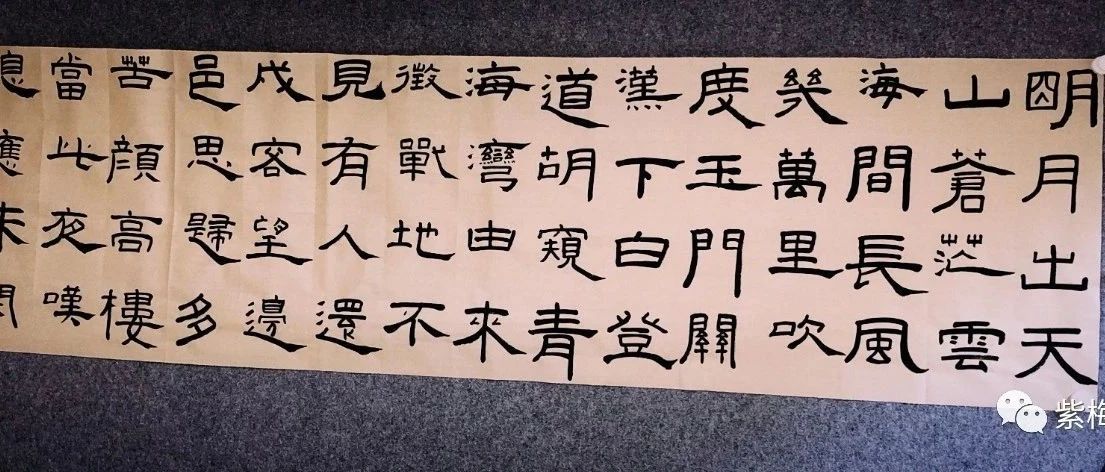 朙月出天
山蒼茫雲
海間長風
幾萬里吹
度玉門關
漢下白登
道胡窺青
海灣由來
徵戰地不
見有人還
戍客望邊
邑思歸多
苦顏高樓
當此夜嘆
息應未
紫梅